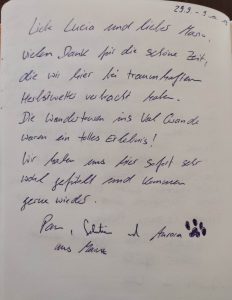 29.9 -
Liebe Lucia und lieber
vielen Dank für die schöne Zeit,
die wir hier bei traumhaftem
Herbstwetter verbracht haben.
Die Wandertouren ins Val Grande
waren ein tolles Erlebnis!
Wir haben uns hier sofort sehr
wohl gefühlt und kommen
gerne wieder.
Aurora
aus